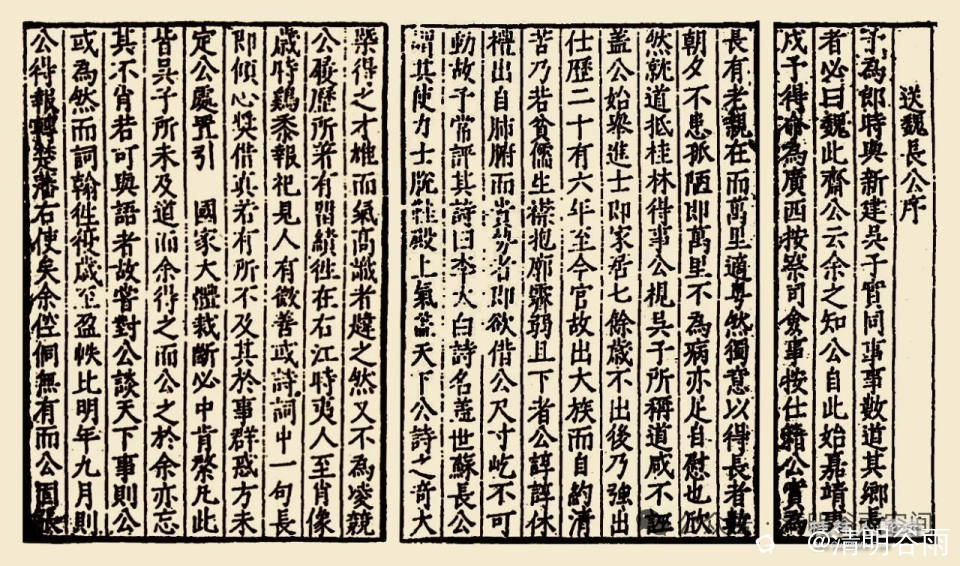 送魏長公序
予為郎時與新建吳子質問事事數道其鄉長
者必曰魏此齋公云余之知公自此始嘉靖
戊子得命為廣西按察司僉事按仕籍公實為
長有老親在而萬里適粵然獨意以得長者數
朝夕不患孤陋即萬里不為病亦足自慰也欣
然就道抵桂林得事公視吳子所稱道咸不誣
蓋公始舉進士即家居七餘歲不出後乃強出
仕歷二十有六年至今官故出大族而自約清
苦乃若貧儒生襟抱廓霽弱且下者公諄諄休
權出自肺腑而當勢者即欲借公尺寸屹不可
動故予常評其詩曰李太白詩名蓋世蘇長公
謂其使力士脫靴殿上氣蓋天下公詩之奇大
槩得之才雄而氣高識者韙之然又不為凌競
公履歷所著有習績徃在右江時夷人至肖像
歲時鷄黍報祀見人有微善或詩詞中一句長
即傾心獎借真若有所不及其於事群惑方未
定公處置引 國家大體裁斷必中肯綮凡此
皆吳子所未及道而余得之而公之於余亦忘
其不肖若可與語者故嘗對公談天下事則公
或為然而詞翰徃徃歲至盈帙比明年九月則
公得報轉楚藩右使矣余倥侗無有而公固
@清明谷雨